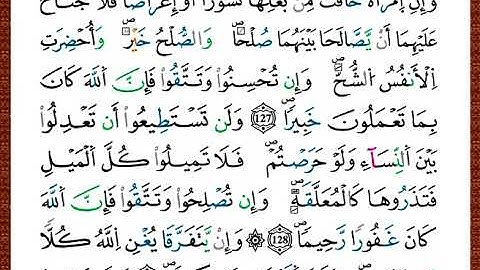 وَإِنِ اِمْرَأَةٌ خَافَتْ مِنۢ بَعْلِهَا نُشُوزًا أَوْ إِعْرَاضًا فَلَا جُنَاحَ
عَلَيْهِمَا أَنْ يَّصَّالَحَا بَيْنَهُمَا صُلْحًا ۖ وَالصُّلْحُ خَيْرٌ ۖ وَأُحْضِرَتِ
اِلْأَنفُسُ الشُّحَّ ۖ وَإِن تُحْسِنُوا۟ وَتَتَّقُوا۟ فَإِنَّ اَللَّهَ كَانَ
بِمَا تَعْمَلُونَ خَبِيرًا ۖ 127 وَلَن تَسْتَطِيعُوا۟ أَن تَعْدِلُوا۟
بَيْنَ اَلنِّسَآءِ وَلَوْ حَرَصْتُمْ ۖ فَلَا تَمِيلُوا۟ كُلَّ اَلْمَيْلِ
فَتَذَرُوهَا كَالْمُعَلَّقَةِ ۖ وَإِن تُصْلِحُوا۟ وَتَتَّقُوا۟ فَإِنَّ اَللَّهَ
كَانَ غَفُورًا رَّحِيمًا ۖ 128 ۞ وَإِنْ يَّتَفَرَّقَا يُغْنِ اِللَّهُ كُلًّا